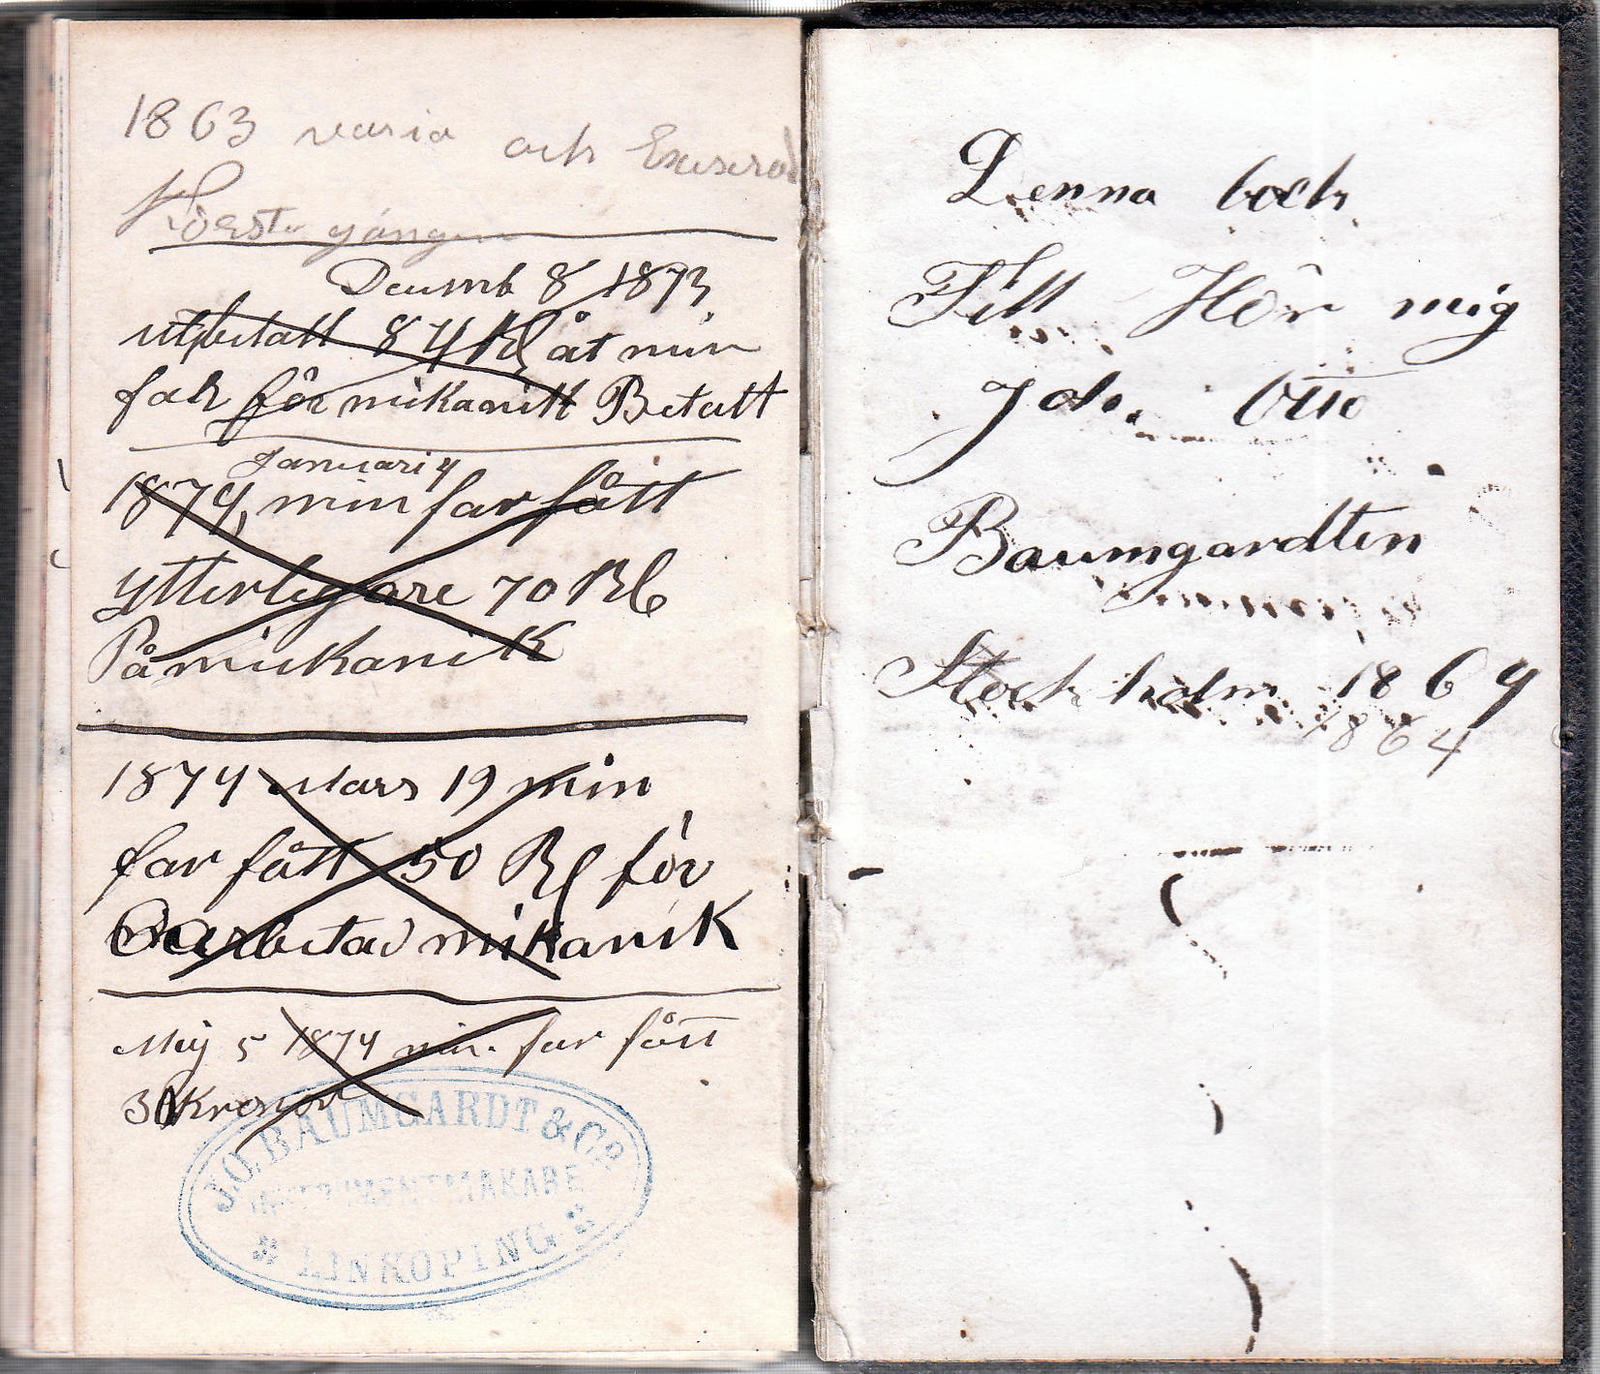 1863 varia och Exsersod
Försto gången
Decemb 8 1873
utbetalt 84 Rl åt min
far för mikanik Betalt
Januari 4
1874, min far fått
ytterligare 70 Rl
På mickanik
1874 Mars 19 min
far fått 50 Rl för
arbetad mikanik
Maj 5 1874 min far fått
30 Kronor
J.O. BAUMGARDT & Co.
INSTRUMENTMAKARE
LINKÖPING
Denna bock
Till Hör mig
Joh. Otto
Baumgardten
Stockholm 1864
1864